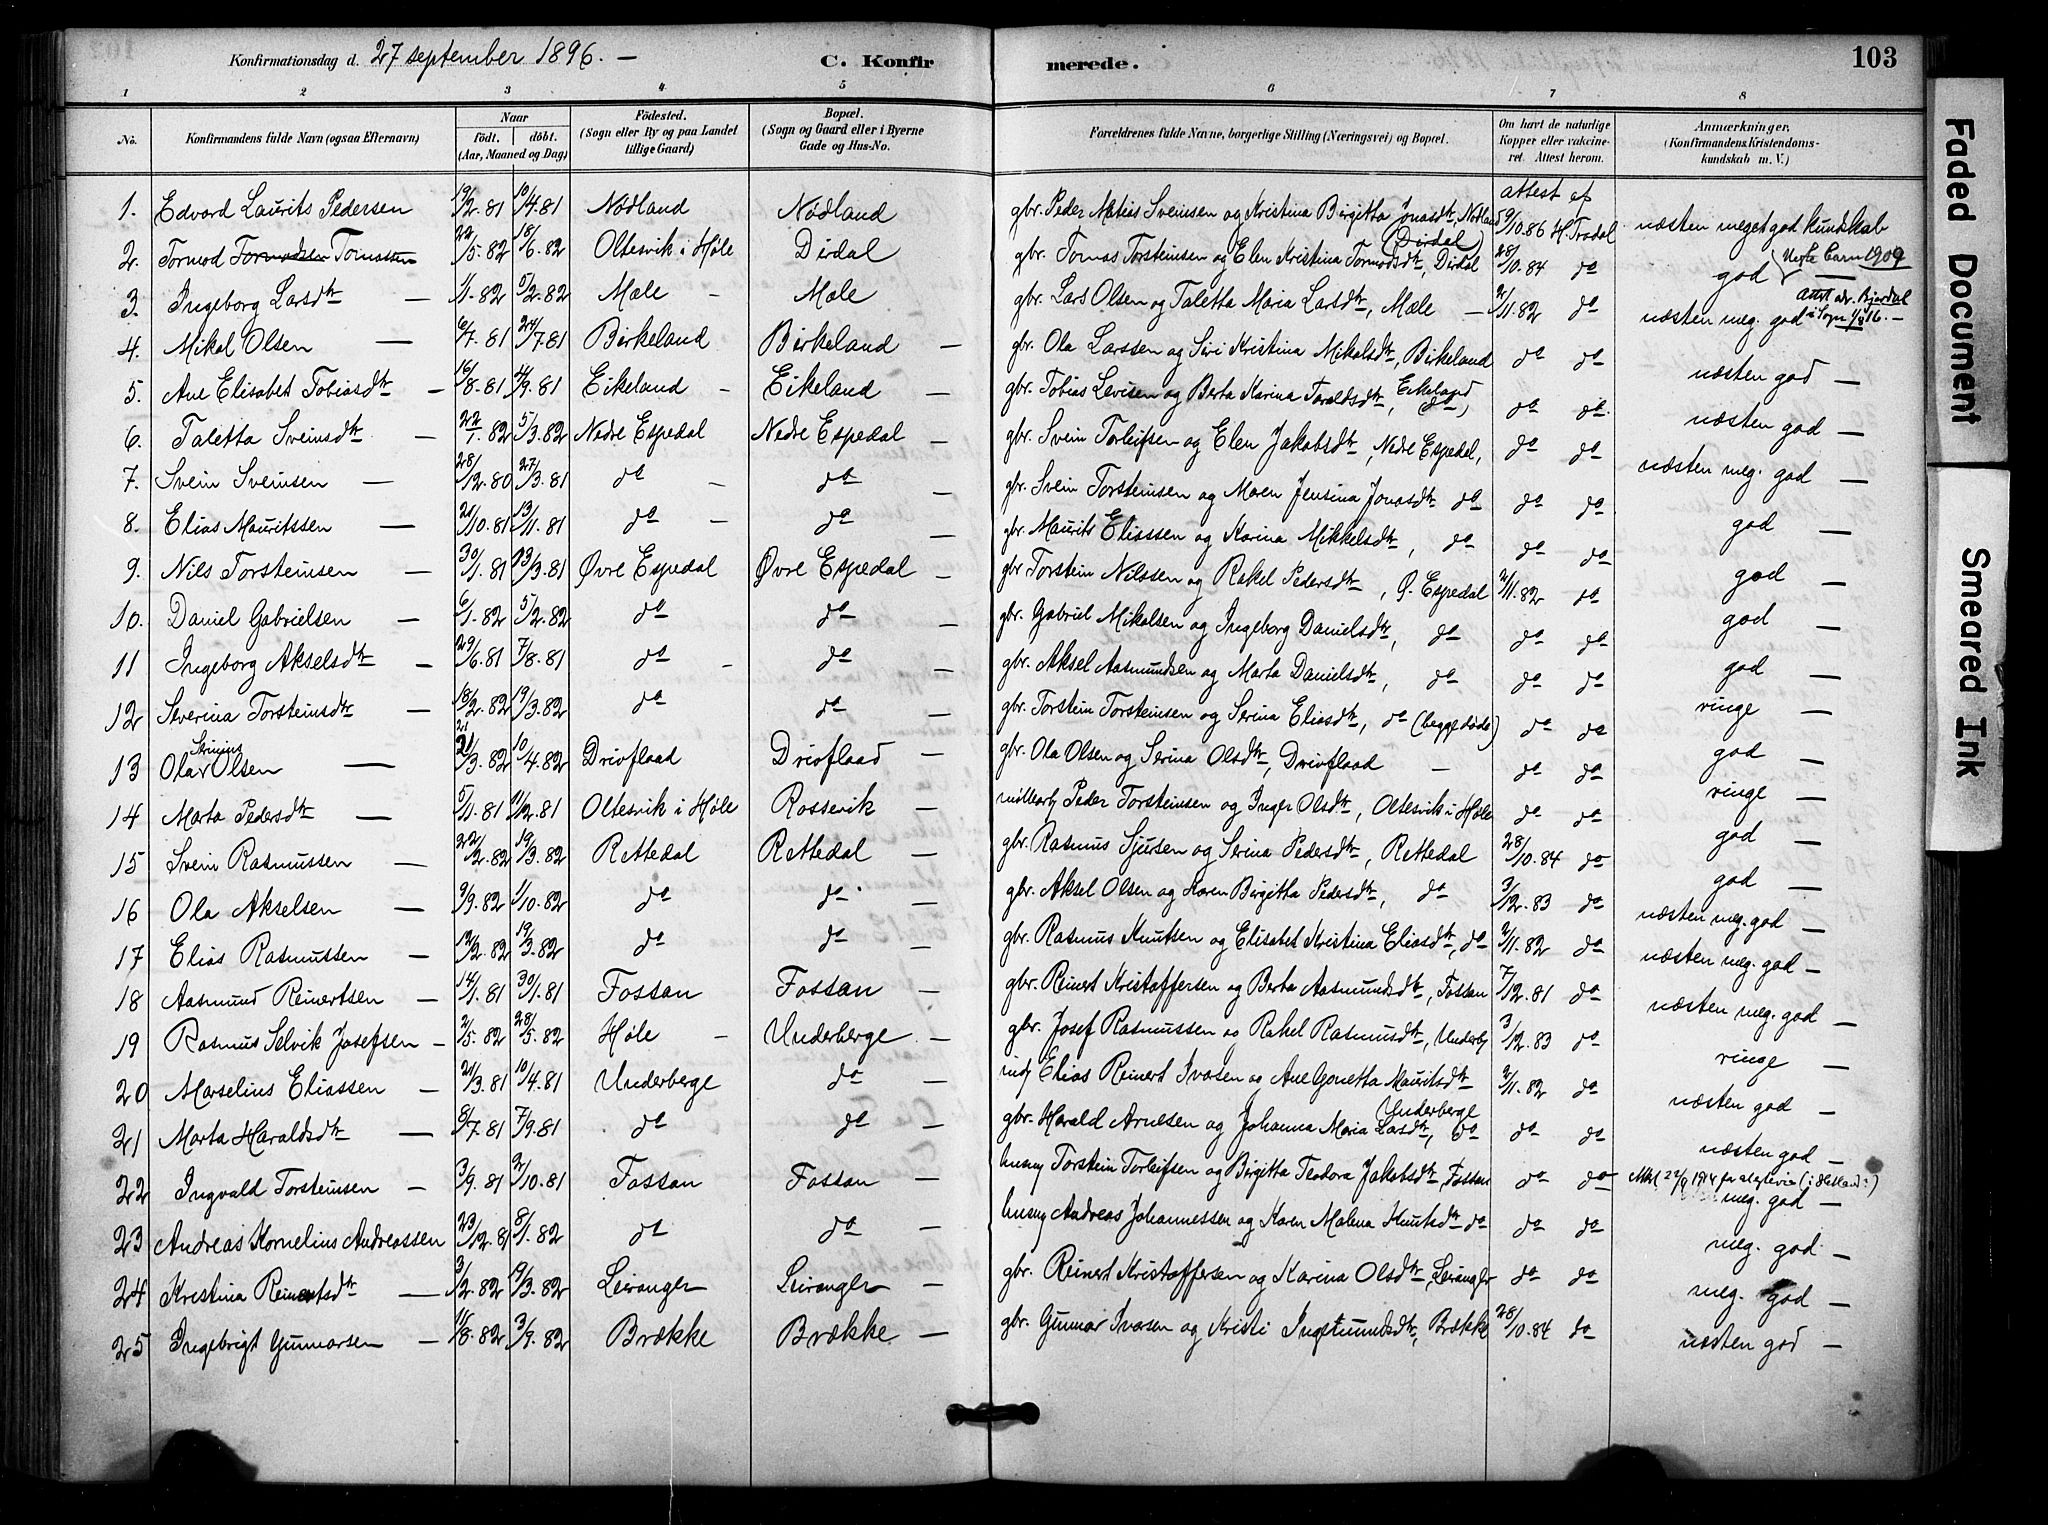 Konfirmationsdag d. 27 september 1896. — C. Konfirmerede. 103
1 2 3 4 5 6 7 8
No. Konfirmandens fulde Navn (ogsaa Efternavn) Naar født. døbt. (Aar, Maaned og Dag) Fødested. (Sogn eller By og paa Landet tillige Gaard) Bopæl. (Sogn og Gaard eller i Byerne Gade og Hus-No. Forældrenes fulde Navne, borgerlige Stilling (Næringsvei) og Bopæl. Om havt de naturlige Kopper eller vakcineret. Attest herom. Anmærkninger. (Konfirmandens Kristendomskundskab m. V.)
1. Edvard Laurits Pedersen 19/2.81 10/4.81 Nødland Nødland gbr. Peder Matias Sveinsen og Kristina Birgitta Jonasdtr, Nødland attest af 9/10.86 H. Tradal næsten meget god kundskab
2. Tormod Tormodsen Tomassen 22/5.82 18/6.82 Oltesvik i Høle Dirdal gbr. Tomas Torsteinsen og Elen Kristina Tormodsdtr, Dirdal (Dirdal) 28/10.84 do god
3. Ingeborg Larsdtr — 1/1.82 5/2.82 Mæle — Mæle gbr. Lars Olsen og Taletta Maria Larsdtr, Mæle — 2/11.82 do næsten meg. god
4. Mikal Olsen — 6/7.81 24/7.81 Birkeland Birkeland — gbr. Ola Larssen og Siri Kristina Mikalsdtr, Birkeland do do næsten god —
5. Ane Elisabet Tobiasdtr — 16/8.81 4/9.81 Eikeland — Eikeland — gbr. Tobias Levisen og Berta Karina Taraldsdtr, Eikeland do do do næsten god —
6. Taletta Sveinsdtr — 22/1.82 5/3.82 Nedre Espedal Nedre Espedal — gbr. Svein Torleifsen og Elen Jakobsdtr, Nedre Espedal, do do næsten meg. god —
7. Svein Sveinsen — 28/12.80 27/3.81 do — do — gbr. Svein Torsteinsen og Maren Jensina Jonasdtr do do do god —
8. Elias Mauritssen — 21/10.81 13/11.81 do — do — gbr. Maurits Eliassen og Karina Mikkelsdtr, do do do god —
9. Nils Torsteinsen — 30/1.81 13/3.81 Øvre Espedal Øvre Espedal — gbr Torstein Nilssen og Rakel Pedersdtr, Ø. Espedal 2/11.82 do god —
10. Daniel Gabrielsen — 6/1.82 5/2.82 do do — gbr. Gabriel Mikalsen og Ingeborg Danielsdtr, do do do god —
11 Ingeborg Akselsdtr — 29/6.81 7/8.81 do — do — gbr. Aksel Aasmundsen og Marta Danielsdtr, do do do ringe —
12 Severina Torsteinsdtr — 18/2.82 19/3.82 do do — gbr. Torstein Torsteinsen og Serina Eliasdtr, do (begge døde) do do god —
13 Ola Serinius Olsen — 21/3.82 10/4.82 Drivflaad Drivflaad — gbr. Ola Olsen og Serina Olsdtr, Drivflaad — do do ringe —
14 Marta Pedersdtr — 5/11.81 11/12.81 Oltesvik i Høle Rossevik — Peder Torsteinsen og Inger Olsdtr, Oltesvik i Høle do do god —
15 Svein Rasmussen — 22/2.82 19/3.82 Rettedal Rettedal — gbr. Rasmus Sjursen og Serina Pedersdtr, Rettedal 28/10.84 do god —
16 Ola Akselsen — 9/9.82 1/10.82 do do — gbr. Aksel Olsen og Karen Birgitta Pedersdtr, do 3/12.83 do næsten meg. god —
17 Elias Rasmussen — 12/2.82 19/3.82 do do — gbr. Rasmus Knutsen og Elisabet Kristina Eliasdtr, do 2/11.82 do næsten meg. god —
18 Aasmund Reinertsen — 14/1.81 30/1.81 Fossan Fossan — gbr. Reinert Kristoffersen og Berta Aasmundsdtr, Fossan 7/12.81 do næsten meg. god —
19 Rasmus Selvik Josefsen — 2/5.82 28/5.82 Høle — Underberge — gbr. Josef Rasmussen og Rakel Rasmusdtr, Underb 3/12.83 do ringe —
20 Marselius Eliassen — 21/3.81 10/4.81 Underberge do — Elias Reinert Ivasen og Ane Gonetta Mauritsdtr Underberge 2/11.82 do næsten god —
21 Marta Haraldsdtr — 8/7.81 7/9.81 do do — gbr. Harald Arnesen og Johanna Maria Larsdtr, do do do næsten god —
22 Ingvald Torsteinsen — 3/9.81 2/10.81 Fossan Fossan — husmd Torstein Torleifsen og Birgitta Teodora Jakobsdtr, Fossan do do meg. god —
23 Andreas Kornelius Andreassen 23/12.81 8/1.82 do do — husmd Andreas Johannessen og Karen Malena Knutsdtr do do do meg. god —
24 Kristina Reinertsdtr — 3/2.82 19/3.82 Leiranger Leiranger — gbr. Reinert Kristoffersen og Karina Olsdtr, Leiranger do do meg. god —
25 Ingebrigt Gunnarsen — 11/8.82 3/9.82 Brække Brække — gbr. Gunnar Ivasen og Kristi Ingemundsdtr, Brække 28/10.84 do næsten god —
Faded Document
Smeared Ink